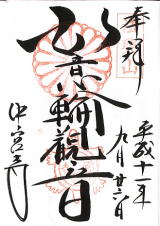 奉拝
平成十一年
九月廿六日
如意輪観音
中宮寺